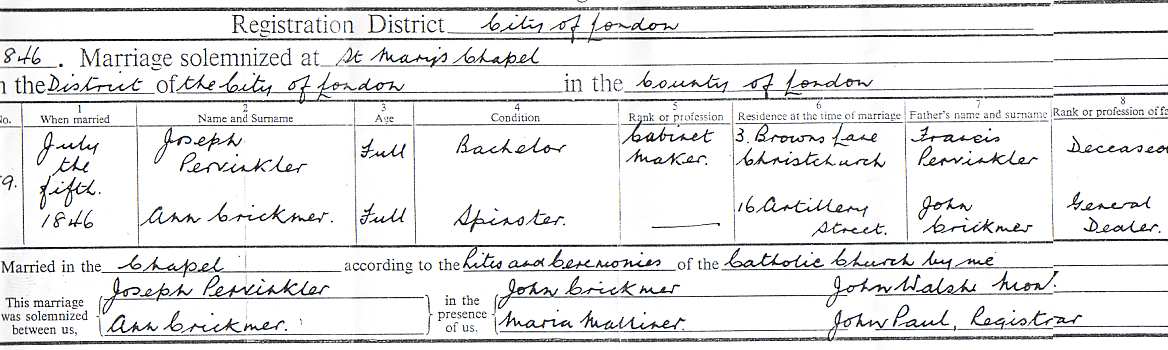 Registration District City of London
1846. Marriage solemnized at St Mary's Chapel
in the District of the City of London in the County of London
No. 1 2 3 4 5 6 7 8
When married Name and Surname Age Condition Rank or profession Residence at the time of marriage Father's name and surname Rank or profession of fa
July the fifth. 1846 Joseph Pervinkler Full Bachelor Cabinet Maker. 3. Browns Lane Christchurch Francis Pervinkler Deceased
9. Ann Crickmer. Full Spinster. 16 Artillery Street. John Crickmer General Dealer.
Married in the Chapel according to the Rites and Ceremonies of the Catholic Church by me
This marriage was solemnized between us, Joseph Pervinkler in the presence of us. John Crickmer John Walshe
Ann Crickmer. Maria Malliner. John Paul, Registrar